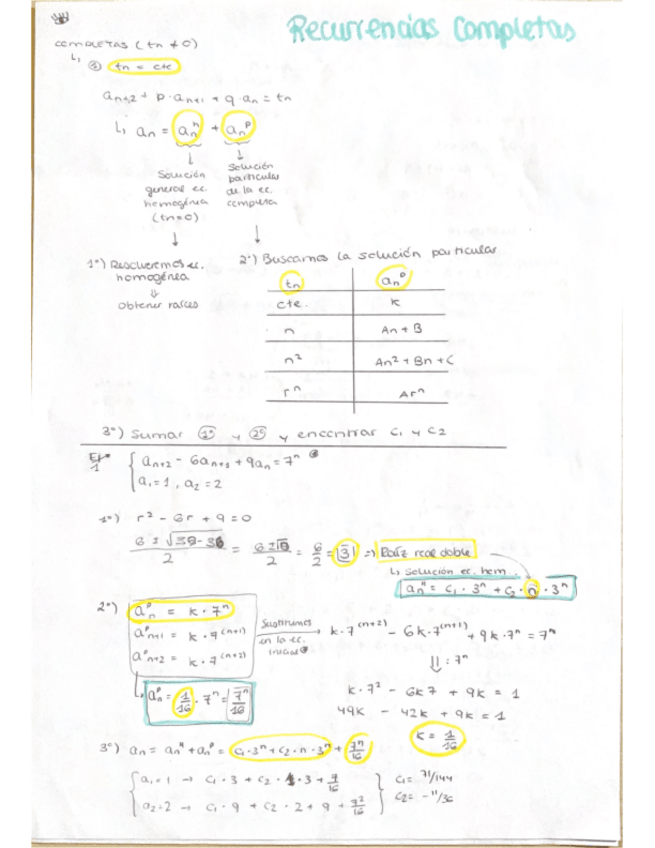 Recurrencias Completas
COMPLETAS (tn ≠ 0)
↳ ① tn = cte
an+2 + p·an+1 + q·an = tn
↳ an = an^h + an^p
Solución general ec. homogénea (tn=0)
Solución particular de la ec. completa
1º) Resolveremos ec. homogénea
⇓
Obtener raíces
2º) Buscamos la solución particular
tn | an^p
cte. | K
n | An + B
n² | An² + Bn + C
r^n | Ar^n
3º) Sumar 1º y 2º y encontrar C1 y C2
Ej 1 { an+2 - 6an+1 + 9an = 7^n
a1 = 1, a2 = 2
1º) r² - 6r + 9 = 0
6 ± √36-36 / 2 = 6±√0 / 2 = 6/2 = 3 ⇒ Raíz real doble
↳ Solución ec. hom..
an^H = C1 · 3^n + C2 · n · 3^n
2º) an^p = k · 7^n
a^p n+1 = k · 7^(n+1)
a^p n+2 = k · 7^(n+2)
Sustituimos en la ec. inicial → k·7^(n+2) - 6k·7^(n+1) + 9k·7^n = 7^n
⇓ : 7^n
k·7² - 6k7 + 9k = 1
49k - 42k + 9k = 1
k = 1/16
↳ an^p = 1/16 · 7^n = 7^n/16
3º) an = an^H + an^p = C1·3^n + C2·n·3^n + 7^n/16
{ a1 = 1 → C1 · 3 + C2 · 1 · 3 + 7/16
a2 = 2 → C1 · 9 + C2 · 2 + 9 + 7²/16 }
C1 = 71/144
C2 = -11/36